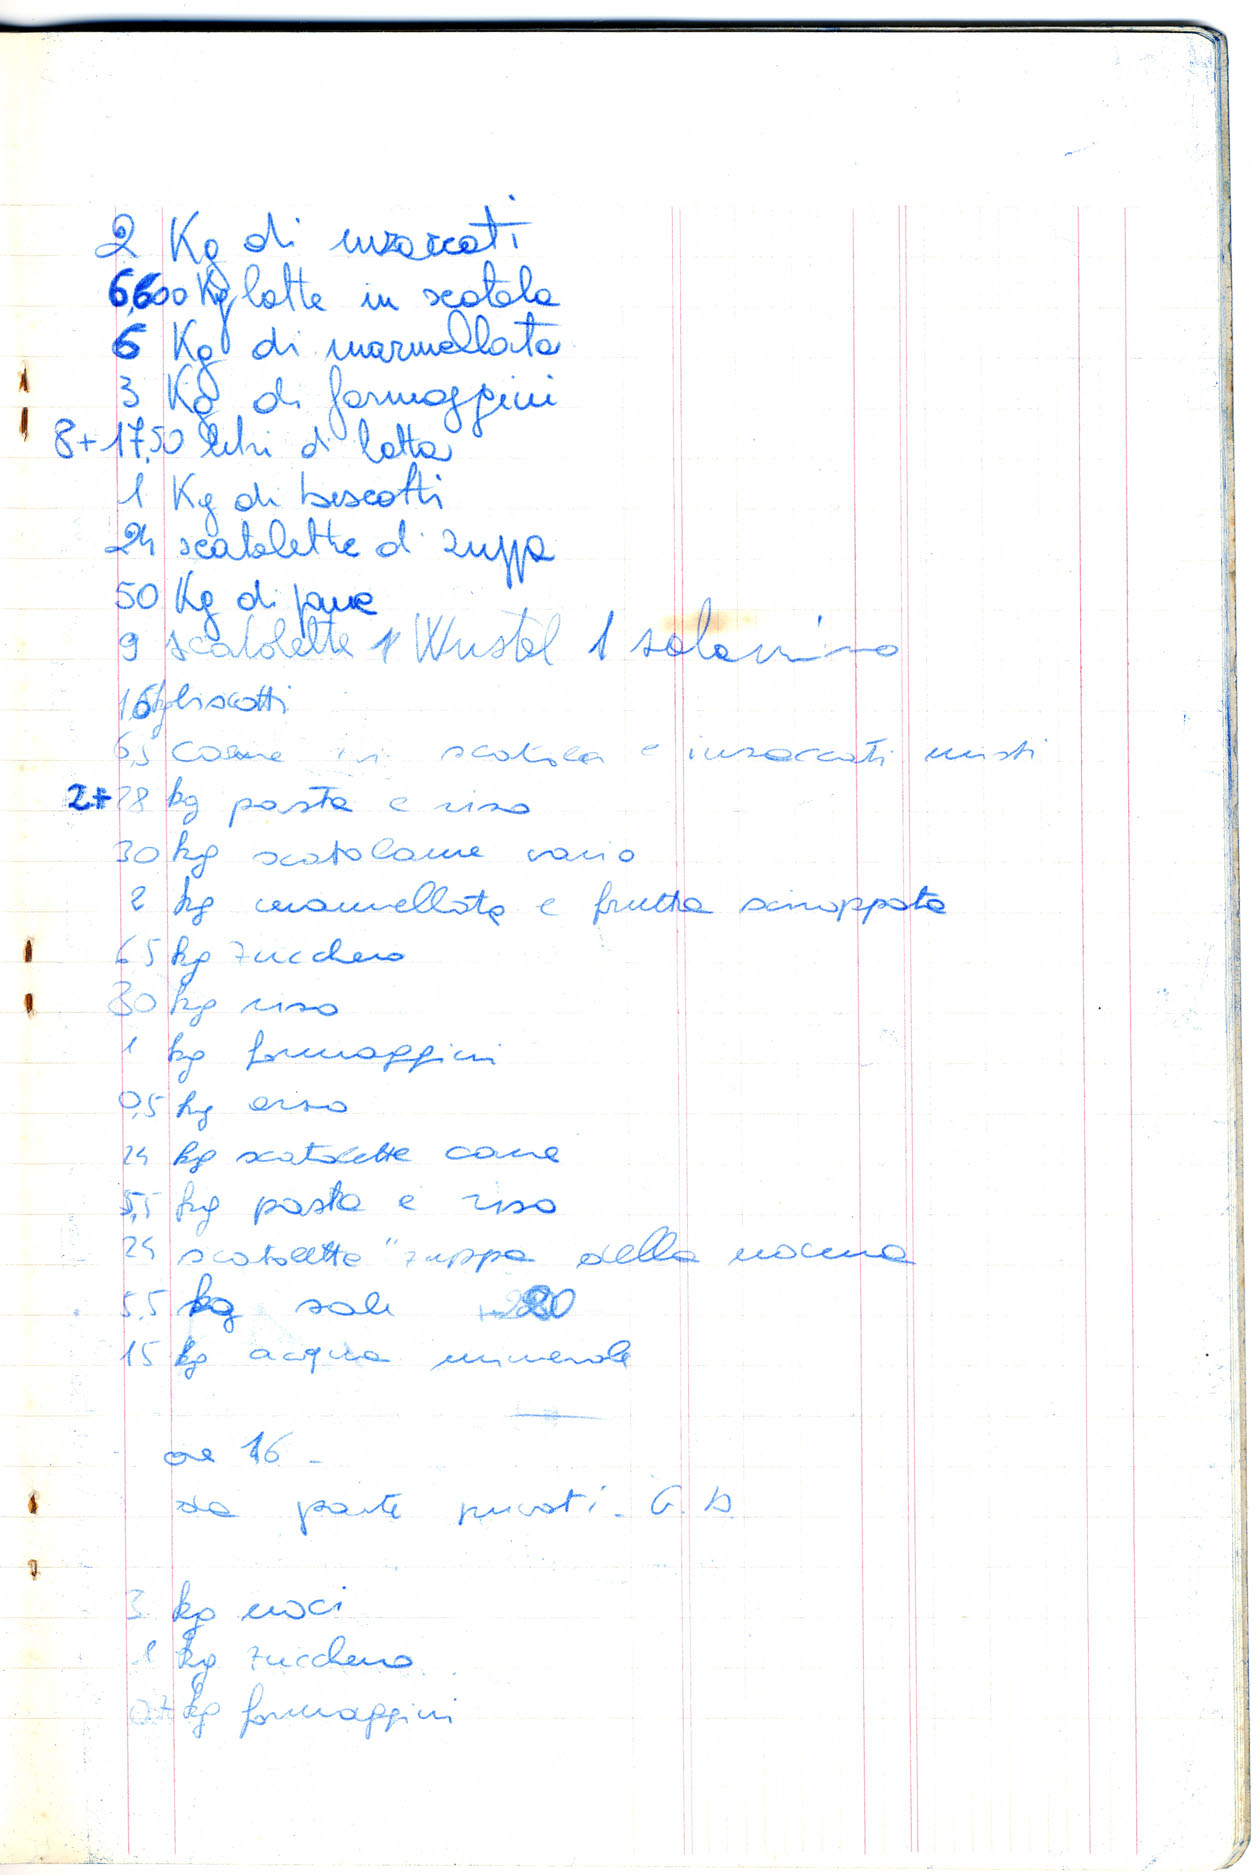 2 Kg di insaccati
6,600 Kg latte in scatola
6 Kg di marmellata
3 Kg di formaggini
8+17,50 litri di latte
1 Kg di biscotti
24 scatolette di zuppa
50 Kg di pane
9 scatolette 1 Wustel 1 salamino
1,6 kg biscotti
6,5 carne in scatola e insaccati misti
2+28 kg pasta e riso
30 kg scatolame vario
2 kg marmellata e frutta sciroppata
65 kg zucchero
30 kg riso
1 kg formaggini
0,5 kg orzo
24 kg scatolette carne
5,5 kg pasta e riso
24 scatolette "zuppa della nonna
5,5 kg sale
15 kg acqua minerale
ore 16 -
da parte privati - G. D.
3 kg noci
1 kg zucchero
kg formaggini